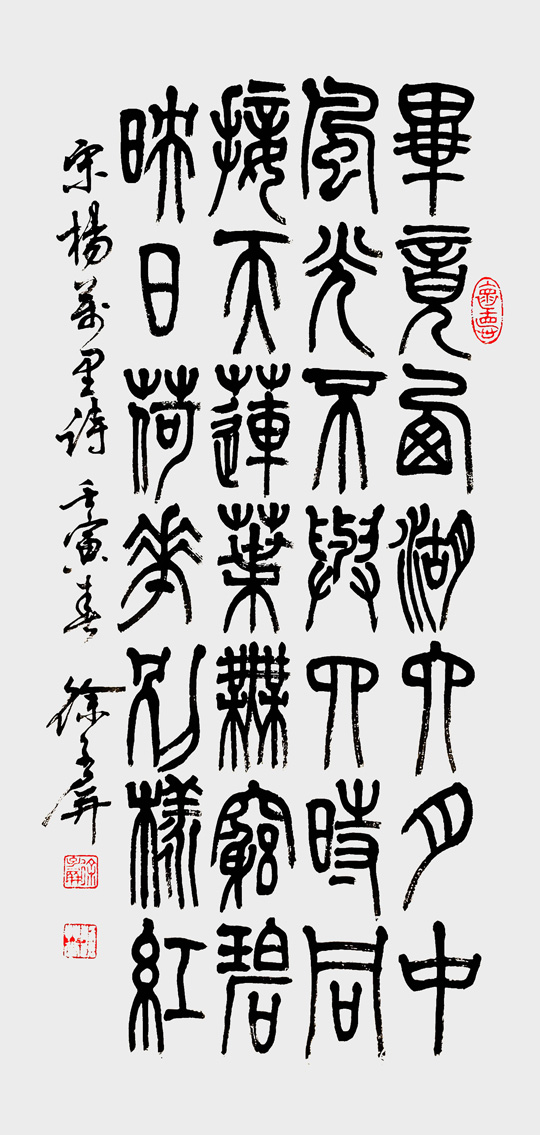 畢竟西湖六月中
風光不與四時同
接天蓮葉無窮碧
映日荷花別樣紅
宋楊萬里詩 壬寅春 徐子屏